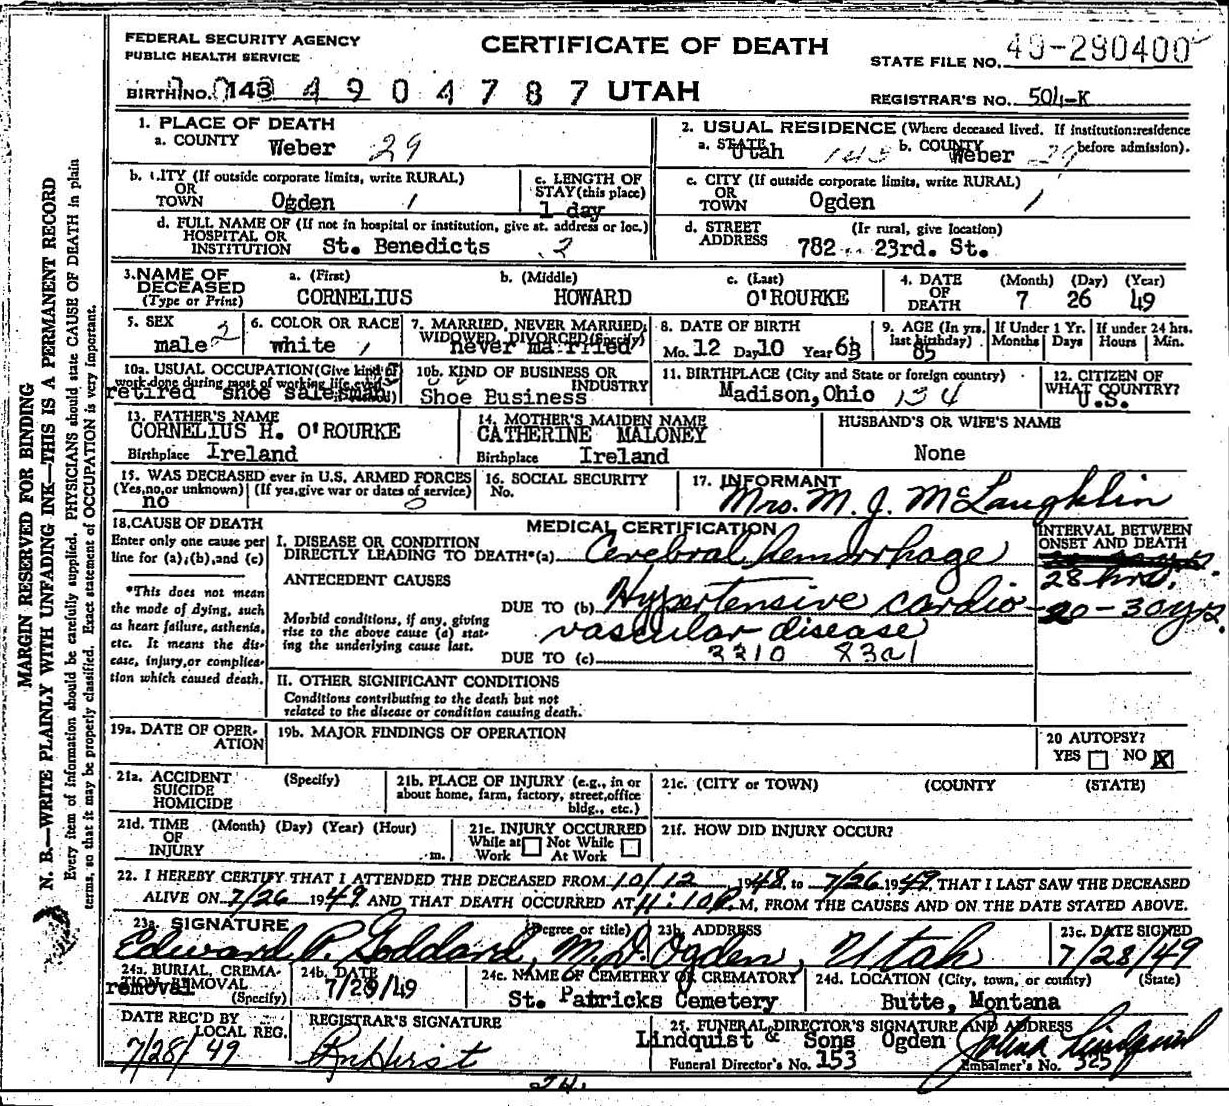 MARGIN RESERVED FOR BINDING
N. B.—WRITE PLAINLY WITH UNFADING INK—THIS IS A PERMANENT RECORD
Every item of information should be carefully supplied. PHYSICIANS should state CAUSE OF DEATH in plain
terms, so that it may be properly classified. Exact statement of OCCUPATION is very important.
FEDERAL SECURITY AGENCY
PUBLIC HEALTH SERVICE
CERTIFICATE OF DEATH
STATE FILE NO. 49-290400
BIRTH NO. 143 4904787 UTAH
REGISTRAR'S NO. 504-K
1. PLACE OF DEATH
a. COUNTY Weber 29
2. USUAL RESIDENCE (Where deceased lived. If institution:residence before admission).
a. STATE Utah 143 b. COUNTY Weber 29
b. CITY (If outside corporate limits, write RURAL)
OR TOWN Ogden 1
c. LENGTH OF STAY (this place)
1 day
c. CITY (If outside corporate limits, write RURAL)
OR TOWN Ogden 1
d. FULL NAME OF (If not in hospital or institution, give st. address or loc.)
HOSPITAL OR INSTITUTION St. Benedicts 2
d. STREET ADDRESS (If rural, give location)
782 23rd. St.
3. NAME OF DECEASED (Type or Print)
a. (First) CORNELIUS
b. (Middle) HOWARD
c. (Last) O'ROURKE
4. DATE OF DEATH (Month) (Day) (Year)
7 26 49
5. SEX
male 2
6. COLOR OR RACE
white 1
7. MARRIED, NEVER MARRIED, WIDOWED, DIVORCED (Specify)
never married
8. DATE OF BIRTH
Mo. 12 Day 10 Year 63
9. AGE (In yrs. last birthday)
85
If Under 1 Yr. Months Days
If under 24 hrs. Hours Min.
10a. USUAL OCCUPATION (Give kind of work done during most of working life, even
retired shoe salesman
10b. KIND OF BUSINESS OR INDUSTRY
Shoe Business
11. BIRTHPLACE (City and State or foreign country)
Madison, Ohio 134
12. CITIZEN OF WHAT COUNTRY?
U.S.
13. FATHER'S NAME
CORNELIUS H. O'ROURKE
Birthplace Ireland
14. MOTHER'S MAIDEN NAME
CATHERINE MALONEY
Birthplace Ireland
HUSBAND'S OR WIFE'S NAME
None
15. WAS DECEASED ever in U.S. ARMED FORCES
(Yes,no,or unknown) (If yes,give war or dates of service)
no 0
16. SOCIAL SECURITY No.
17. INFORMANT
Mrs. M. J. McLaughlin
18. CAUSE OF DEATH
Enter only one cause per line for (a),(b),and (c)
*This does not mean the mode of dying, such as heart failure, asthenia, etc. It means the disease, injury,or complication which caused death.
MEDICAL CERTIFICATION
I. DISEASE OR CONDITION
DIRECTLY LEADING TO DEATH*(a) Cerebral hemorrhage
ANTECEDENT CAUSES
DUE TO (b) Hypertensive cardio-
Morbid conditions, if any, giving rise to the above cause (a) stating the underlying cause last.
vascular disease
DUE TO (c) 3310 8321
INTERVAL BETWEEN ONSET AND DEATH
28 hrs.
20-30 yrs.
II. OTHER SIGNIFICANT CONDITIONS
Conditions contributing to the death but not
related to the disease or condition causing death.
19a. DATE OF OPERATION
19b. MAJOR FINDINGS OF OPERATION
20 AUTOPSY?
YES NO X
21a. ACCIDENT SUICIDE HOMICIDE (Specify)
21b. PLACE OF INJURY (e.g., in or about home, farm, factory, street,office bldg., etc.)
21c. (CITY or TOWN) (COUNTY) (STATE)
21d. TIME OF INJURY (Month) (Day) (Year) (Hour) m.
21e. INJURY OCCURRED
While at Work Not While At Work
21f. HOW DID INJURY OCCUR?
22. I HEREBY CERTIFY THAT I ATTENDED THE DECEASED FROM 10/12 1948, to 7/26 1949, THAT I LAST SAW THE DECEASED
ALIVE ON 7/26 1949 AND THAT DEATH OCCURRED AT 11:10 P. M, FROM THE CAUSES AND ON THE DATE STATED ABOVE.
23a. SIGNATURE (Degree or title)
Edward P. Goddard, M.D.
23b. ADDRESS
Ogden, Utah
23c. DATE SIGNED
7/28/49
24a. BURIAL, CREMATION REMOVAL (Specify)
removal
24b. DATE
7/29/49
24c. NAME OF CEMETERY OR CREMATORY
St. Patricks Cemetery
24d. LOCATION (City, town, or county) (State)
Butte, Montana
DATE REC'D BY LOCAL REG.
7/28/49
REGISTRAR'S SIGNATURE
25. FUNERAL DIRECTOR'S SIGNATURE AND ADDRESS
Lindquist & Sons Ogden
Funeral Director's No. 153
Embalmer's No. 325
24.